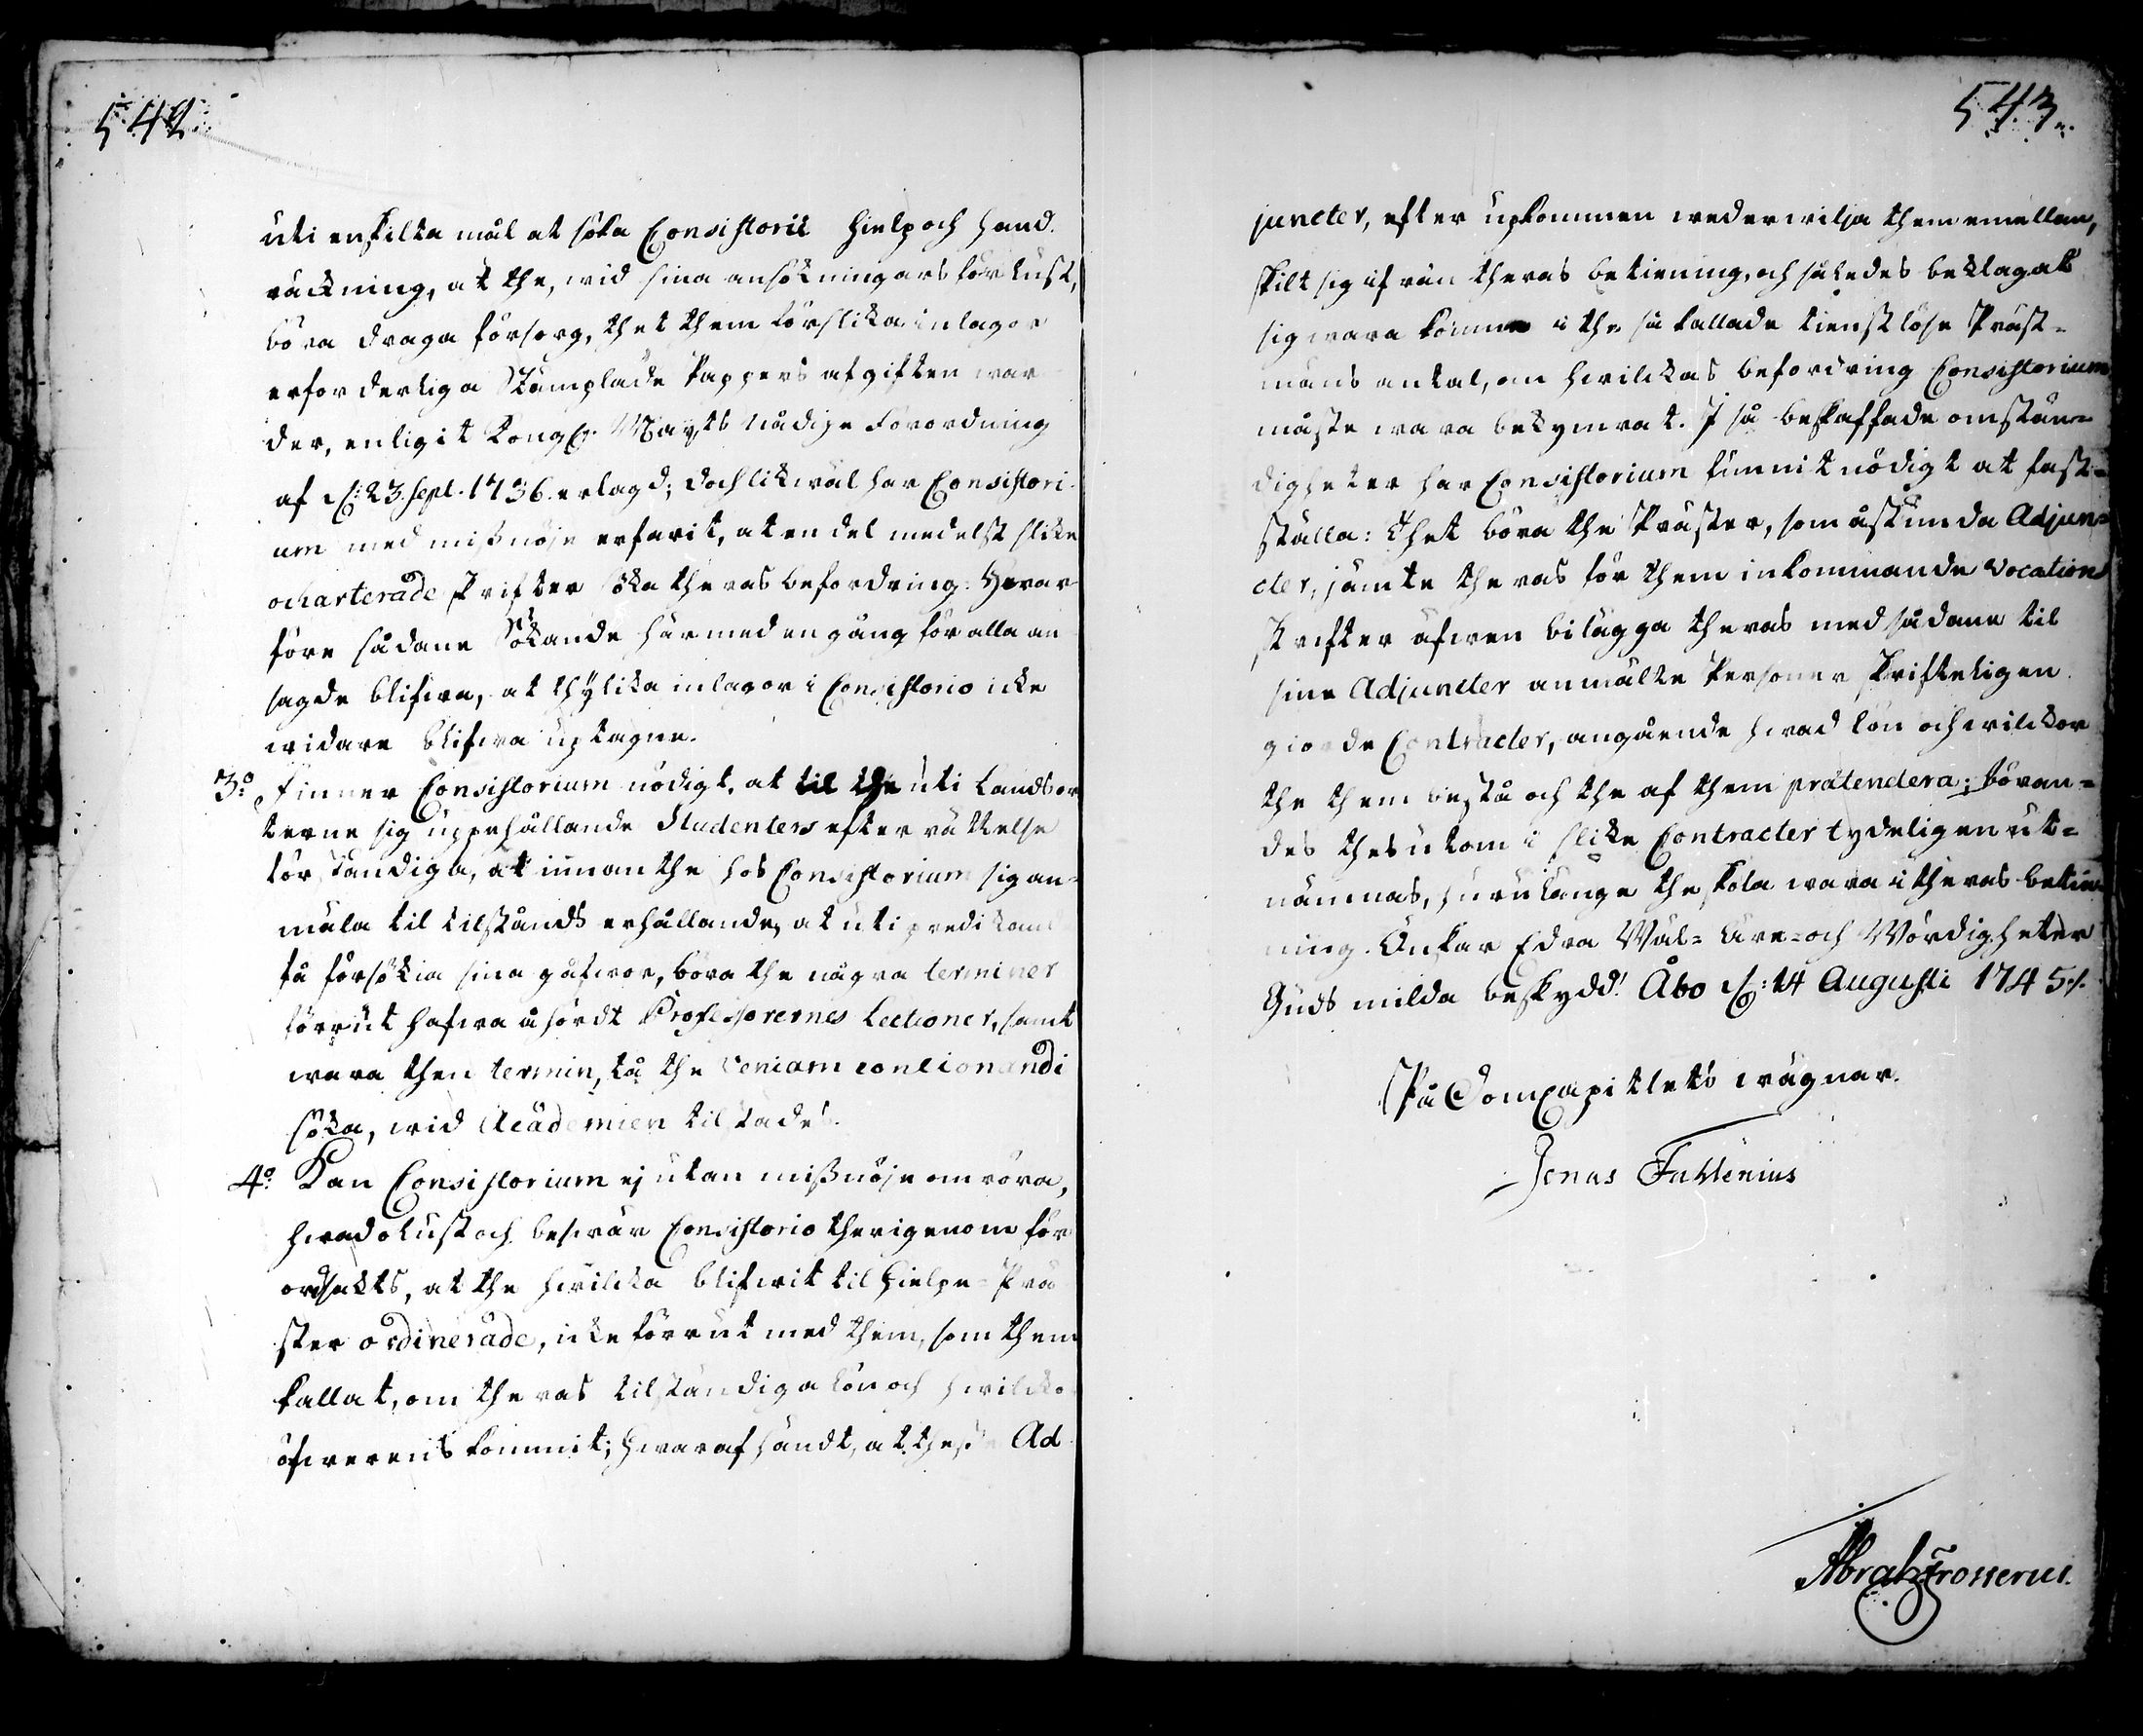 542
uti enskilta mål at söka Consistorii hielp och hand
räckning, at the, wid sina ansökningars förlust,
böra draga försorg, thet them för slika inlagor
erforderliga Stämplade Pappers afgiften war
der, enligit Kongl. Mayts nådige Förordning
af d: 23. Sept. 1736. erlagd; doch likwäl har Consistori
um med missnöje erfarit, at en del medelst slike
ocharterade skrifter söka theras befordring: Hwar
före sådane Sökande här med en gång för alla an
sagde blifwa, at thylika inlagor i Consistorio icke
widare blifwa uptagne.
3:o Finner Consistorium nödigt, at til the uti Landsor
terne sig uppehållande Studenters efterrättelse
förständiga, at innan the hos Consistorium sig an-
mäla til tilstånds erhållande, at uti predikand
få försökia sina gåfwor, böra the några terminer
förrut hafwa åhördt Professorernes Lectioner, samt
wara then termin, tå the veniam concionandi
söka, wid Academien tilstades.
4:o Kan Consistorium ej utan missnöje omröra,
hwad olust och beswär Consistorio therigenom för
ordsakts, at the hwilcka blifwit til Hielpe-Prä
ster ordinerade, icke förrut med them, som them
kallat, om theras tilständiga lön och hwilcko
öfwerens kommit; hwaraf händt, at thesse Ad
543.
juncter, efter upkommen wederwilja them emellan,
skilt sig ifrån theras betiening, och således beklagat
sig wara komne i the så kallade tienstlöse Präst-
mäns antal, om hwilckas befordring Consistorium
måste wara bekymrat. I så beskaffade omstän-
digheter har Consistorium funnit nödigt at fast-
ställa: Thet böra the Präster, som åstunda Adjun-
cter, jämte theras för them inkommande Vocations
skrifter äfwen bilägga theras med sådane til
sine Adjuncter anmälte Personer skrifteligen
giorde Contracter, angående hwad lön och wilckor
the them bestå och the af them prætendera; böran-
des thesutom i slike Contracter tydeligen ut-
nämnas, huru länge the skola wara i theras betie-
ning. Önskar Edra Wäl- Äre- och Wördigheter
Guds milda beskydd! Åbo d: 14 Augusti 1745./.
På DomCapitlets wägnar.
Jonas Fahlenius
Abrah Frosterus.